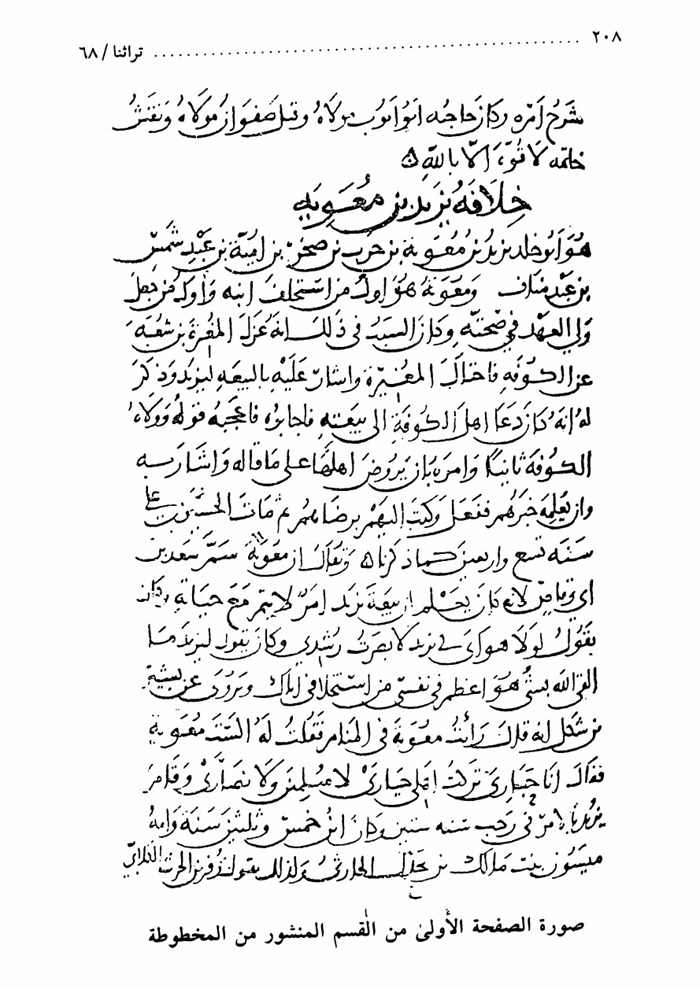 ٢٠٨ ........................................ تراثنا / ٦٨
شرح امره وكان حاجبه ابو ايوب مولاه وقيل صفوان مولاه ونقش
خاتمه لا قوة الا بالله
خلافة يزيد بن معوية
هو ابو خلد يزيد بن معوية بن حرب بن صخر بن امية بن عبد شمس
بن عبد مناف ومعوية هو اول من استخلف ابنه واول من جعل
ولي العهد في صحته وكان السبب في ذلك انه عزل المغيرة بن شعبة
عن الكوفة فاحتال المغيرة واشار عليه بالبيعة ليزيد وذكر
له انه كان دعا اهل الكوفة الى بيعته فاجابوه فاعجبه قوله وولاه
الكوفة ثانيا وامره بان يروض اهلها على ما قاله واشار به
وان يعلمه خبرهم ففعل وكتب اليهم برضاهم ثم مات الحسن بن علي
سنة تسع واربعين كما ذكرنا ويقال ان معوية سم سعد بن
ابي وقاص لانه كان يعلم ان بيعة يزيد امر لا يتم مع حياته وكان
يقول لولا هواي في يزيد لابصرت رشدي وكان يقول ليزيد ما
القى الله بشيء هو اعظم في نفسي من استخلافي اياك ويروى عن
من شكل انه قال رأيت معوية في المنام فقلت له الست معوية
فقال انا تركت لا مسلمين ولا نصارى وقام
يزيد بالامر في رجب سنة ستين وكان ابن خمس وثلثين سنة وامه
ميسون بنت مالك بن بحدل ولذلك يقول زفر بن الحرث الكلابي
صورة الصفحة الأولىٰ من القسم المنشور من المخطوطة